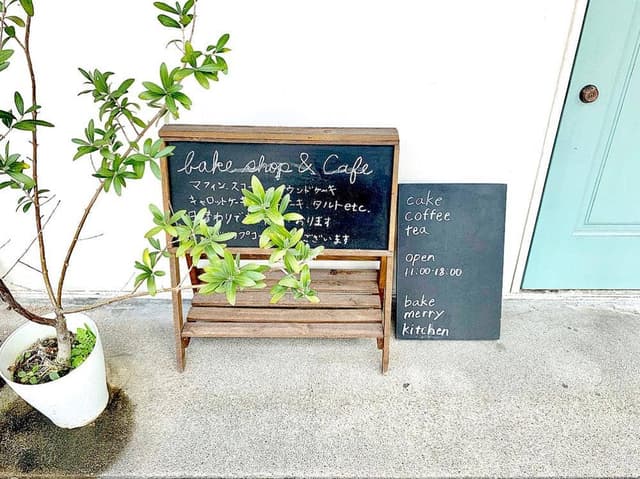 bake shop & Cafe
マフィン、スコ ウンドケーキ
キャロットケー ーキ、タルト etc.
日 わりで おります
プコ ございます
cake
coffee
tea
open
11:00-18:00
bake
merry
kitchen